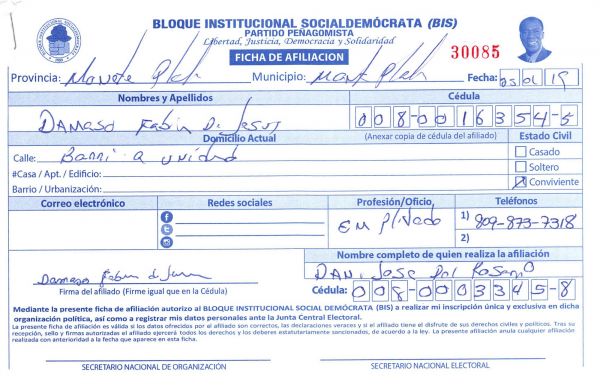 BLOQUE INSTITUCIONAL SOCIALDEMÓCRATA (BIS)
PARTIDO PEÑAGOMISTA
Libertad, Justicia, Democracia y Solidaridad
FICHA DE AFILIACION
30085
Provincia: Monte Plata Municipio: Monte Plata Fecha: 05 01 19
Nombres y Apellidos
Cédula
DAMASO Fabian De Jesus
008-0016354-5
Domicilio Actual
(Anexar copia de cédula del afiliado)
Estado Civil
Calle: Barrio unidad
Casado
#Casa / Apt. / Edificio:
Soltero
Barrio / Urbanización:
Conviviente
Correo electrónico
Redes sociales
Profesión/Oficio
Teléfonos
1) 809-873-7318
2)
Nombre completo de quien realiza la afiliación
Damaso Fabian de Jesus
DANI Jose Del Rosario
Firma del afiliado (Firme igual que en la Cédula)
Cédula: 008-0003345-8
Mediante la presente ficha de afiliación autorizo al BLOQUE INSTITUCIONAL SOCIAL DEMÓCRATA (BIS) a realizar mi inscripción única y exclusiva en dicha
organización política, así como a registrar mis datos personales ante la Junta Central Electoral.
La presente ficha de afiliación es válida si los datos ofrecidos por el afiliado son correctos, las declaraciones veraces y si el afiliado tiene el disfrute de sus derechos civiles y políticos. Tras su
recepción, sello y firmas autorizadas el afiliado ejercerá todos los derechos y los deberes estatutariamente sancionados, de acuerdo a la ley. La presente afiliación anula cualquier afiliación
realizada con anterioridad a la fecha que aparece en esta ficha.
SECRETARIO NACIONAL DE ORGANIZACIÓN
SECRETARIO NACIONAL ELECTORAL